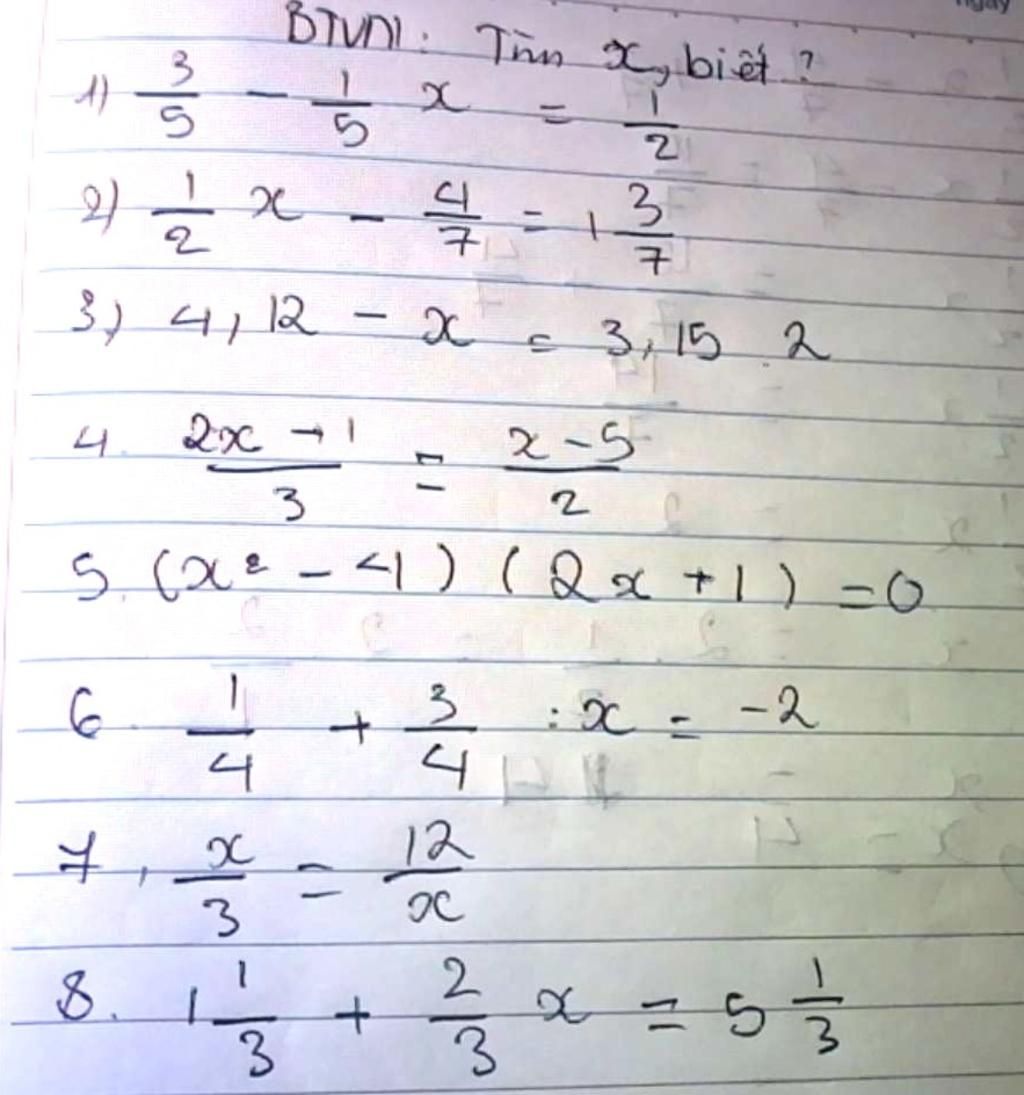 ngày
BTVN1: Tìm x, biết?
1) 3/5 - 1/5 x = 1/2
2) 1/2 x - 4/7 = 1 3/7
3) 4,12 - x = 3,15 . 2
4. (2x - 1)/3 = (x - 5)/2
5. (x² - 4) (2x + 1) = 0
6. 1/4 + 3/4 : x = -2
7, x/3 = 12/x
8. 1 1/3 + 2/3 x = 5 1/3